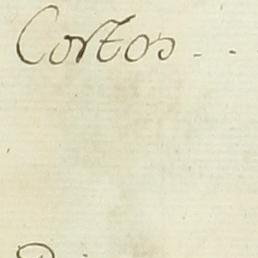 Cortos - - -